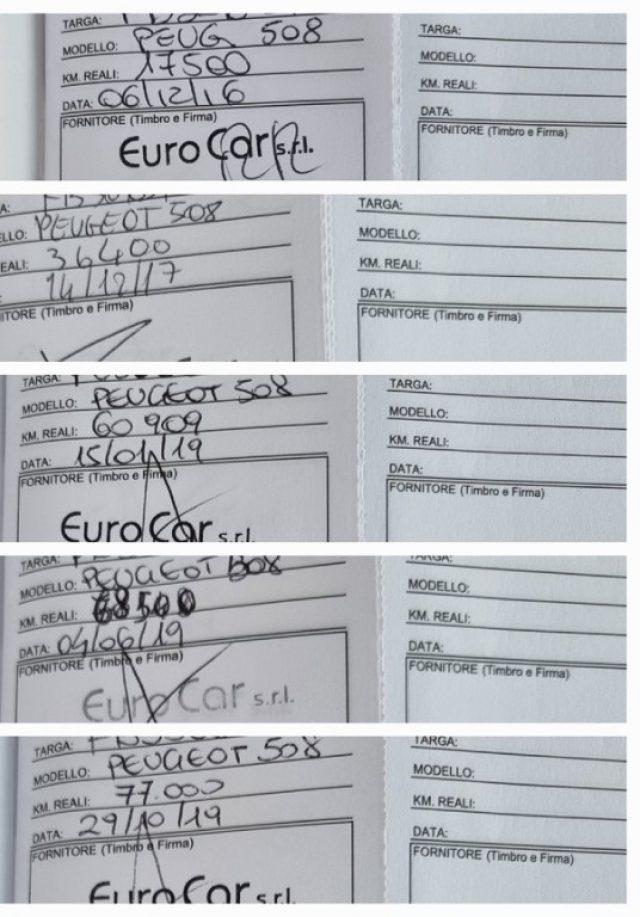 TARGA:
MODELLO: PEUG 508
KM. REALI: 17500
DATA: 06/12/16
FORNITORE (Timbro e Firma)
EuroCar s.r.l.
TARGA:
MODELLO:
KM. REALI:
DATA:
FORNITORE (Timbro e Firma)
A:
LLO: PEUGEOT 508
EALI: 36400
14/12/17
ITORE (Timbro e Firma)
TARGA:
MODELLO:
KM. REALI:
DATA:
FORNITORE (Timbro e Firma)
TARGA:
MODELLO: PEUGEOT 508
KM. REALI: 60 909
DATA: 15/01/19
FORNITORE (Timbro e Firma)
EuroCar s.r.l.
TARGA:
MODELLO:
KM. REALI:
DATA:
FORNITORE (Timbro e Firma)
TARGA:
MODELLO: PEUGEOT 508
KM. REALI: 68500
DATA: 04/06/19
FORNITORE (Timbro e Firma)
EuroCar s.r.l.
TARGA:
MODELLO:
KM. REALI:
DATA:
FORNITORE (Timbro e Firma)
TARGA:
MODELLO: PEUGEOT 508
KM. REALI: 77.000
DATA: 29/10/19
FORNITORE (Timbro e Firma)
EuroCar s.r.l.
TARGA:
MODELLO:
KM. REALI:
DATA:
FORNITORE (Timbro e Firma)